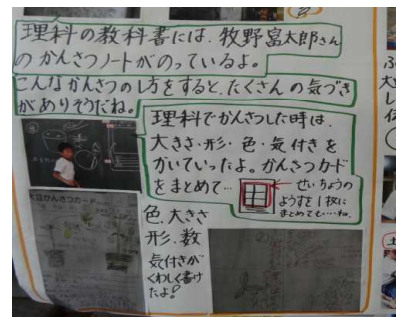 理科の教科書には、牧野富太郎さん
のかんさつノートがのっているよ。
こんなかんさつのし方をすると、たくさんの気づき
がありそうだね。
理科でかんさつした時は、
大きさ・形・色・気付きを
かいていったよ。かんさつカード
をまとめて…
せいちょうの
ようすを1枚に
まとめても…ね。
色、大きさ
形、数
気付きが
くわしく書け
たよ!